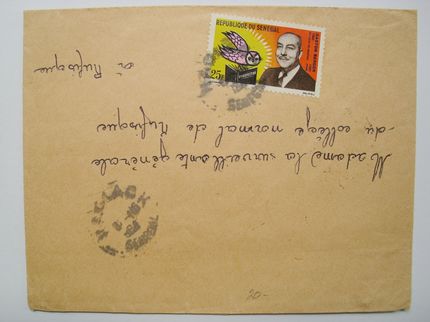 REPUBLIQUE DU SENEGAL
GASTON BERGER
25F
Madame) la surveillante générale
du collège normal de Rufisque
à Rufisque
SENEGAL
20-